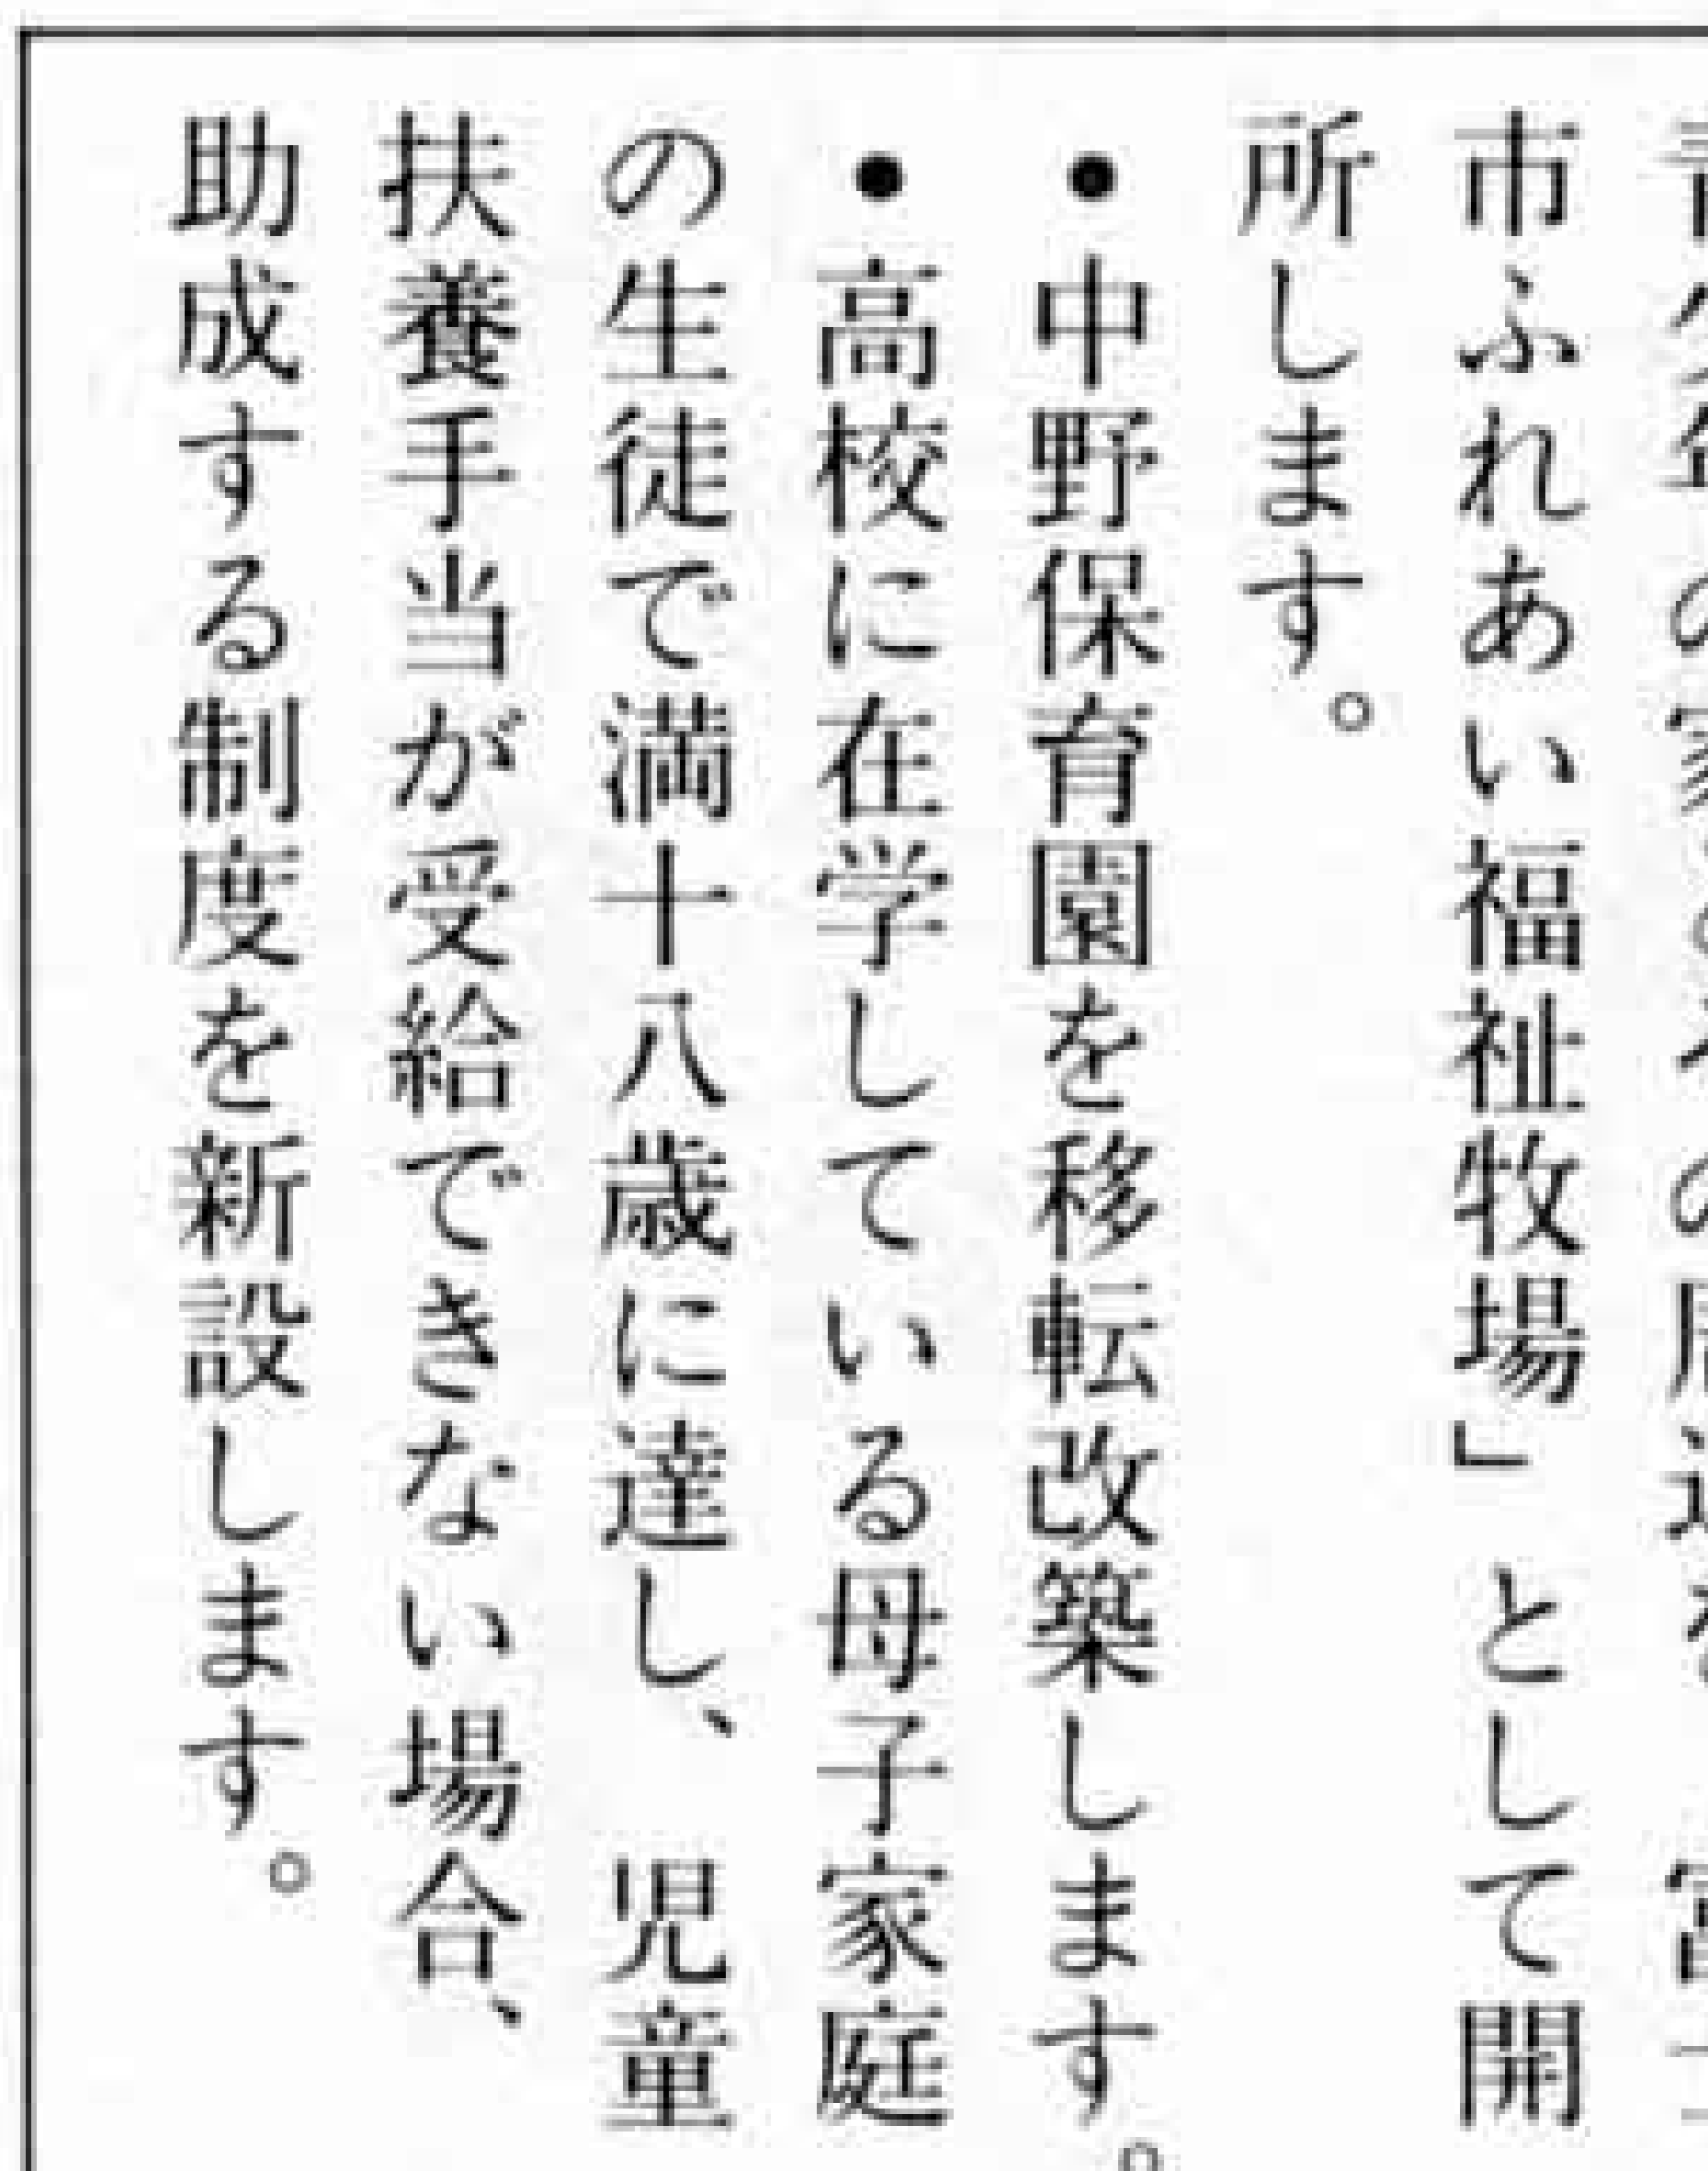 市ふれあい福祉牧場」として開
所します。
●中野保育園を移転改築します。
●高校に在学している母子家庭
の生徒で満十八歳に達し、児童
扶養手当が受給できない場合、
助成する制度を新設します。